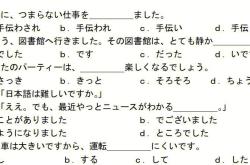 に、つまらない仕事を＿＿＿＿＿ました。
手伝わされ　b．手伝われ　c．手伝い　d．手伝
う、図書館へ行きました。その図書館は、とても静か＿＿＿＿＿
でした　b．です　c．だった　d．い
たのパーティーは、＿＿＿＿＿楽しくなるでしょう。
さっき　b．きっと　c．そろそろ　d．ちょう
「日本語は難しいですか。」
「ええ。でも、最近やっとニュースがわかる＿＿＿＿＿。」
ことがありました　b．でございました
ようになりました　d．ところでした
車は大きいですから、運転＿＿＿＿＿にくいです。
し　b．する　c．して　d．した